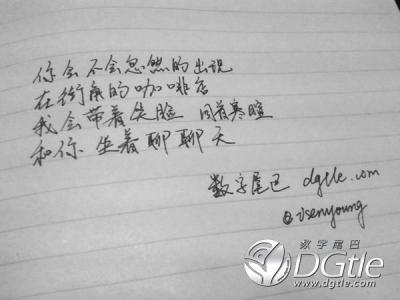 你会不会忽然的出现
在街角的咖啡店
我会带着笑脸 回首寒暄
和你 坐着聊聊天
数字尾巴 dgtle.com
@isenyoung
数字尾巴
DGtle
www.dgtle.com